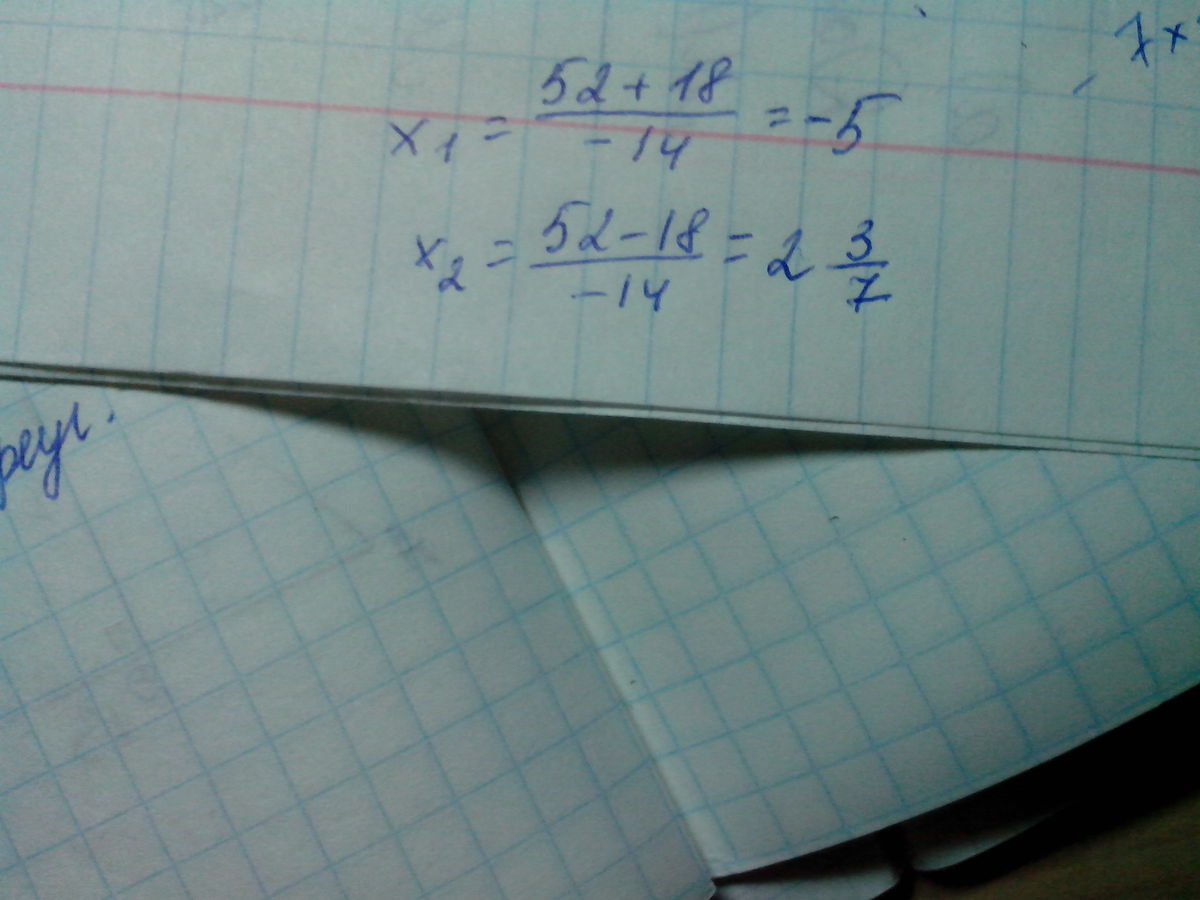 7x
x₁ = (52 + 18)/(-14) = -5
x₂ = (52 - 18)/(-14) = 2 3/7